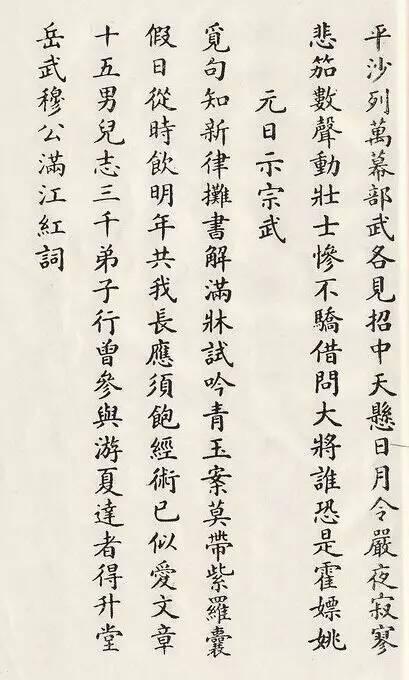 平沙列萬幕部武各見招中天懸日月令嚴夜寂寥
悲笳數聲動壯士慘不驕借問大將誰恐是霍嫖姚
元日示宗武
覓句知新律攤書解滿牀試吟青玉案莫帶紫羅囊
假日從時飲明年共我長應須飽經術已似愛文章
十五男兒志三千弟子行曾參與游夏達者得升堂
岳武穆公滿江紅詞